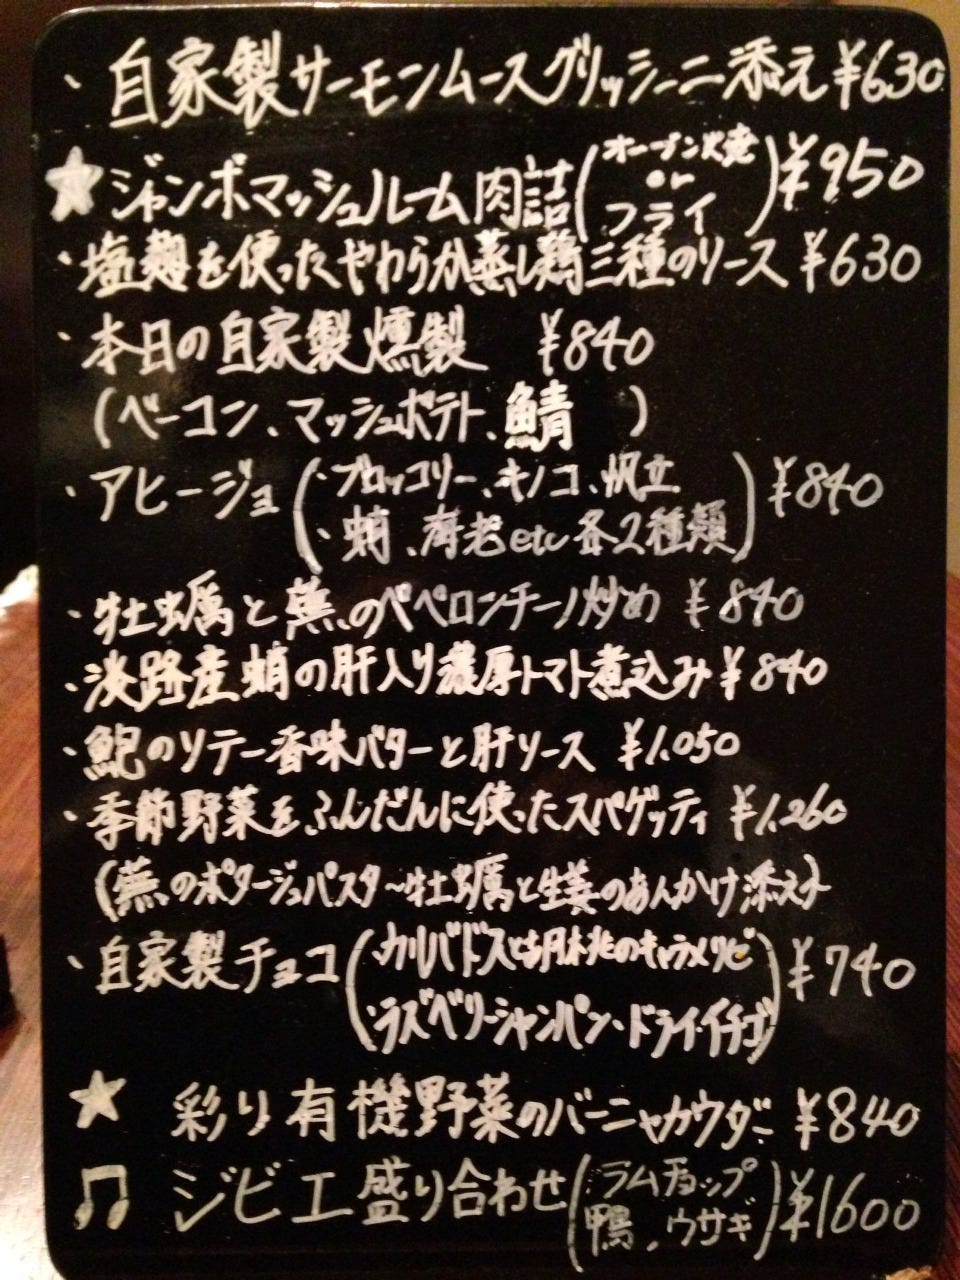 ・自家製サーモンムースグリッシーニ添え ¥630
★ジャンボマッシュルーム肉詰(オーブン焼 or フライ) ¥950
・塩麹を使ったやわらか蒸し鶏三種のソース ¥630
・本日の自家製燻製 ¥840
(ベーコン、マッシュポテト、鯖 )
・アヒージョ(・ブロッコリー、キノコ、帆立 ¥840
・蛸、海老etc各2種類)
・牡蠣と蕪のペペロンチーノ炒め ¥840
・淡路産蛸の肝入り濃厚トマト煮込み ¥840
・鮑のソテー香味バターと肝ソース ¥1.050
・季節野菜をふんだんに使ったスパゲッティ ¥1.260
(蕪のポタージュパスタ〜牡蠣と生姜のあんかけ添え)
・自家製チョコ(カルバドスと胡桃のキャラメリゼ ¥740
・ラズベリーシャンパン・ドライイチゴ)
★ 彩り有機野菜のバーニャカウダ ¥840
♫ ジビエ盛り合わせ(ラムチョップ ¥1600
鴨、ウサギ)